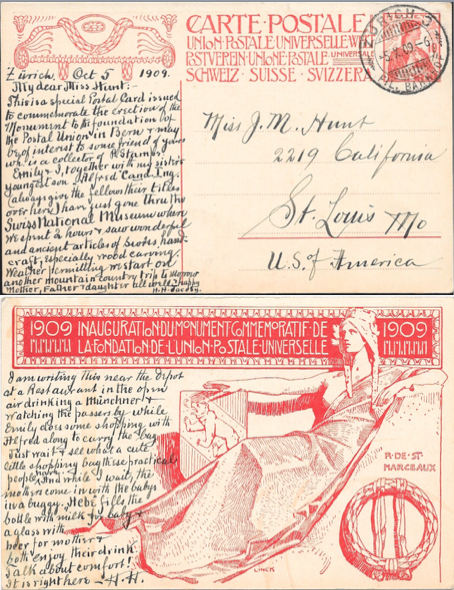 CARTE·POSTALE
UNION·POSTALE·UNIVERSELLE·W
POSTVEREIN·UNIONE·POSTALE UNIVERSALE
SCHWEIZ·SUISSE·SVIZZERA
ZÜRICH 3
-5.X.09.-6
Zürich, Oct 5 1909.
My dear Miss Hunt:-
This is a special Postal Card issued
to commemorate the erection of the
Monument to the foundation of
the Postal Union in Bern & may
be of interest to some friend of yours
who is a collector of P. Stamps.
Emily & I, together with my sister's
youngest son, Alfred Cand. Ing.
(always give the fellows their titles
over here) have just gone thru the
Swiss National Museum where
we spent 2 hours & saw wonderful
and ancient articles of Swiss hand-
craft, especially wood carving.
Weather permitting we start on
another mountain country trip to morrow
Mother, Father & daughter all well & happy
H.H. Jacoby.
Miss J. M. Hunt
2219 California
St. Louis Mo
U.S. of America
1909 INAUGURATION·DU·MONUMENT·COMMEMORATIF·DE 1909
LA·FONDATION·DE·L'UNION·POSTALE·UNIVERSELLE
I am writing this near the depot
at a Restaurant in the open
air drinking a Münchner &
watching the passers by while
Emily does some shopping with
Alfred along to carry the bag
Just wait & see what a cute
little shopping bag these practical
people And while I wait, the
mothers come in with the babys
in a buggy, Hebe fills the
bottle with milk for baby &
a glass with
beer for mother &
both enjoy their drink
Talk about comfort!
It is right here - H.H.
R·DE·ST·
MARCEAUX
LINCK